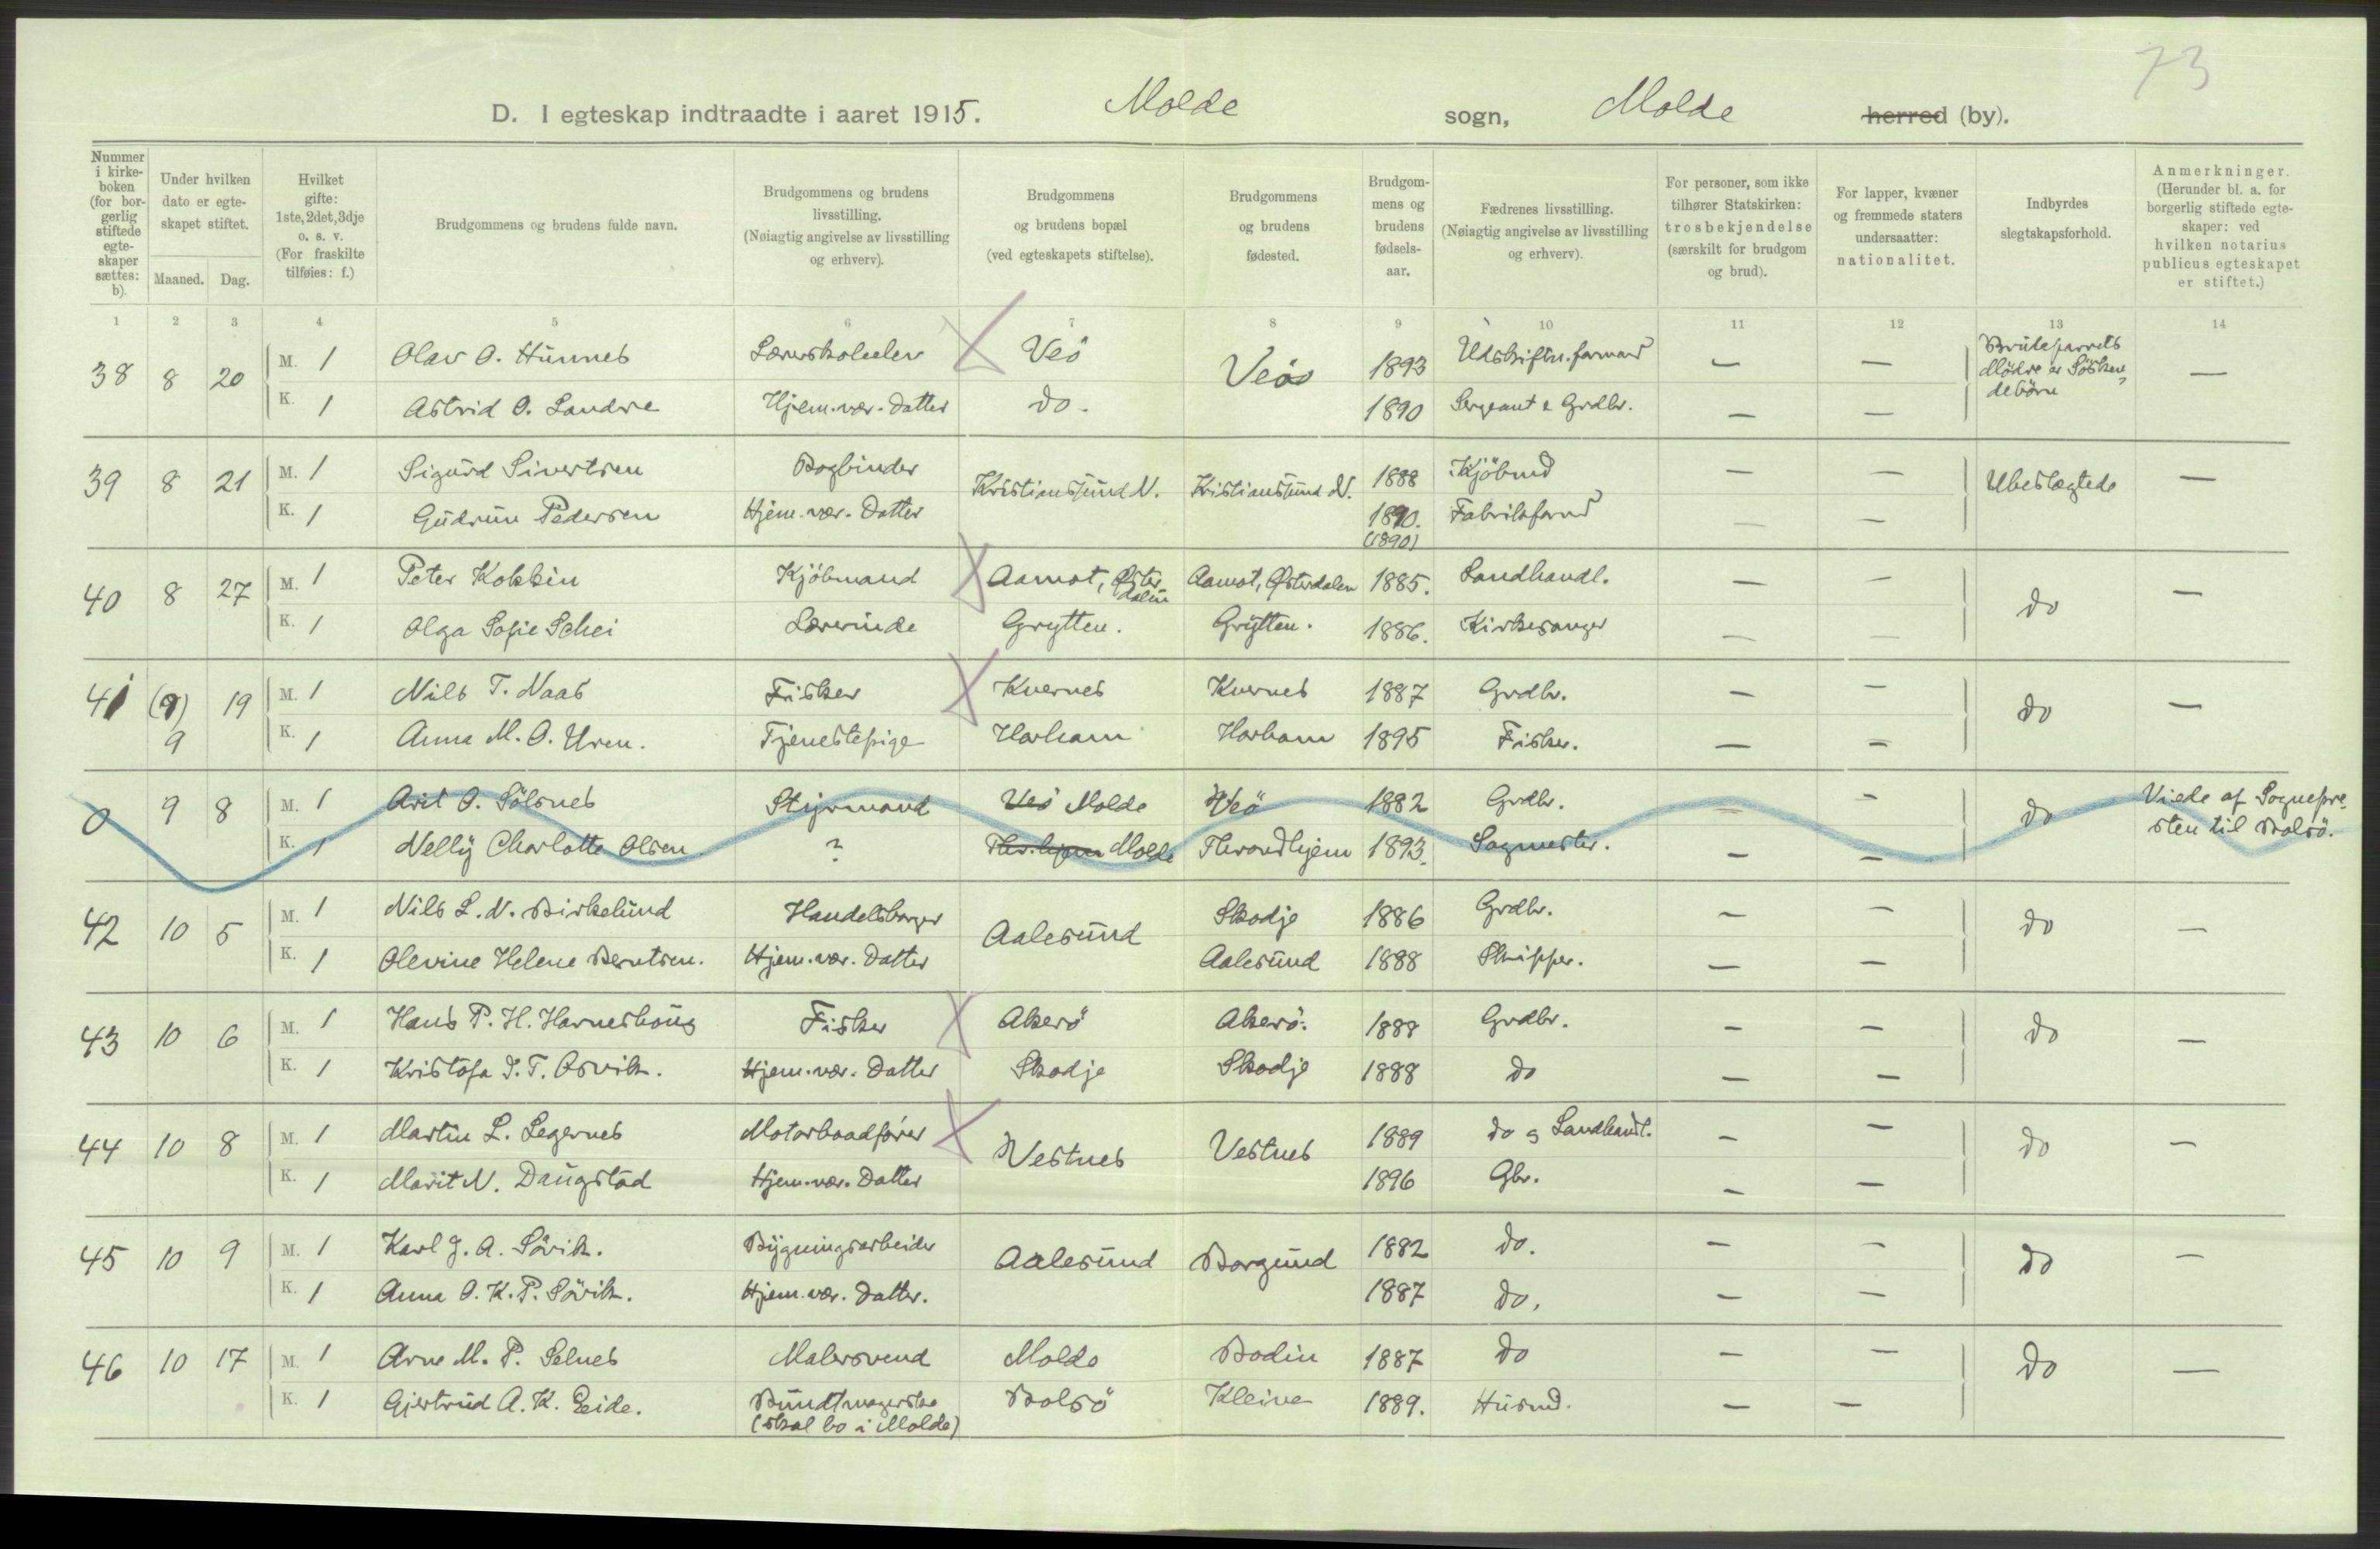 73
D. I egteskap indtraadte i aaret 1915. Molde sogn, Molde herred (by).
Nummer i kirke-boken (for bor-gerlig stiftede egte-skaper sættes: b).
Under hvilken dato er egte-skapet stiftet.
Maaned. Dag.
Hvilket gifte: 1ste, 2det, 3dje o. s. v. (For fraskilte tilføies: f.)
Brudgommens og brudens fulde navn.
Brudgommens og brudens livsstilling. (Nøiagtig angivelse av livsstilling og erhverv).
Brudgommens og brudens bopæl (ved egteskapets stiftelse).
Brudgommens og brudens fødested.
Brudgom-mens og brudens fødsels-aar.
Fædrenes livsstilling. (Nøiagtig angivelse av livsstilling og erhverv).
For personer, som ikke tilhører Statskirken: trosbekjendelse (særskilt for brudgom og brud).
For lapper, kvæner og fremmede staters undersaatter: nationalitet.
Indbyrdes slegtskapsforhold.
Anmerkninger. (Herunder bl. a. for borgerlig stiftede egte-skaper: ved hvilken notarius publicus egteskapet er stiftet.)
1 2 3 4 5 6 7 8 9 10 11 12 13 14
38 8 20 M. 1 Olav O. Hunnes Lærerskoleelev Veö Veö 1893 Udskiftn.formand — — Brudeparrets Mödre er Söskendebörn —
K. 1 Astrid O. Landre Hjem.vær. Datter do. 1890 Sergeant & Grdbr. — —
39 8 21 M. 1 Sigurd Sivertsen Bogbinder Kristianssund N. Kristianssund N. 1888 Kjöbmd — — Ubeslægtede —
K. 1 Gudrun Pedersen Hjem.vær. Datter 1890. (1890) Fabrikformd — —
40 8 27 M. 1 Peter Kokkin Kjöbmand Aamot, Østerdalen Aamot, Østerdalen 1885. Landhandl. — — do —
K. 1 Olga Sofie Schei Lærerinde Grytten. Grytten. 1886. Kirkesanger — —
41 (9) 9 19 M. 1 Nils T. Naas Fisker Kvernes Kvernes 1887 Grdbr. — — do —
K. 1 Anna M. O. Uren. Tjenestepige Harham Harham 1895 Fisker. — —
0 9 8 M. 1 Arit O. Sölsnes Styrmand Veö Molde Veö 1882 Grdbr. — — do Viede af Sognepresten til Bolsö.
K. 1 Nelly Charlotte Olsen ? Thr.hjem Molde Throndhjem 1893. Sagmester. — —
42 10 5 M. 1 Nils L. N. Birkelund Handelsborger Aalesund Skodje 1886 Grdbr. — — do —
K. 1 Olevine Helene Berntsen. Hjem.vær. Datter Aalesund 1888 Skipper. — —
43 10 6 M. 1 Hans P. H. Harneshaug Fisker Akerö Akerö. 1888 Grdbr. — — do —
K. 1 Kristofa I. T. Osvik. Hjem.vær. Datter Skodje Skodje 1888 do — —
44 10 8 M. 1 Martin L. Legernes Motorbaadfører Vestnes Vestnes 1889 do og Landhandl. — — do —
K. 1 Marit N. Daugstad Hjem.vær. Datter 1896 Gbr. — —
45 10 9 M. 1 Karl J. A. Sövik. Bygningsarbeider Aalesund Borgund 1882 do. — — do —
K. 1 Anna O. K. P. Sövik. Hjem.vær. Datter. 1887 do, — —
46 10 17 M. 1 Arne M. P. Selnes Malersvend Molde Bodin 1887 do — — do —
K. 1 Gjertrud A. K. Eide. Bundtmagerske (skal bo i Molde) Bolsö Kleive 1889. Husmd. — —